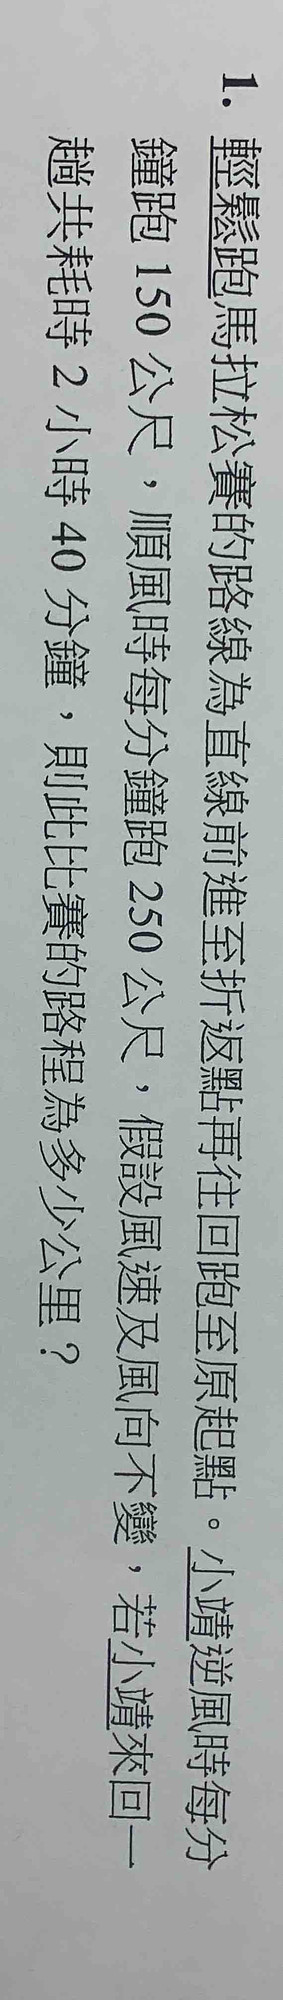 1. 輕鬆跑馬拉松賽的路線為直線前進至折返點再往回跑至原起點。小靖逆風時每分
鐘跑 150 公尺，順風時每分鐘跑 250 公尺，假設風速及風向不變，若小靖來回一
趟共耗時 2 小時 40 分鐘，則此比賽的路程為多少公里？